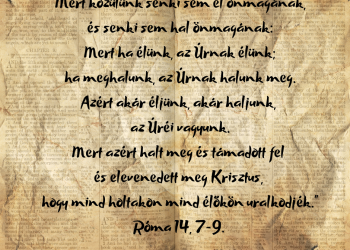 Mert közülünk senki sem él önmagának,
és senki sem hal önmagának;
Mert ha élünk, az Úrnak élünk;
ha meghalunk, az Úrnak halunk meg.
Azért akár éljünk, akár haljunk,
az Úréi vagyunk.
Mert azért halt meg és támadott fel
és elevenedett meg Krisztus,
hogy mind holtakon mind élőkön uralkodjék."
Róma 14, 7-9.